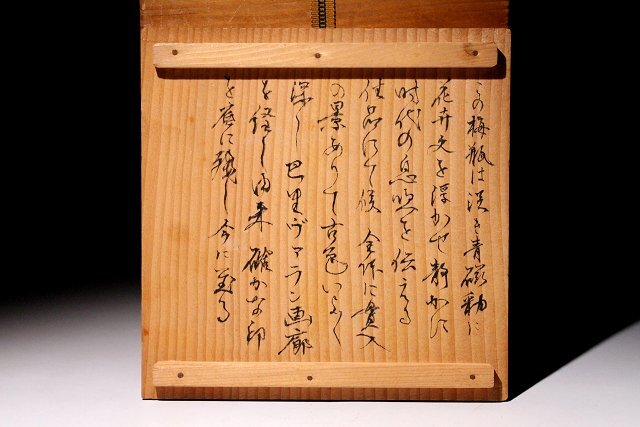 この梅瓶は淡き青磁釉に
花卉文を浮かせ静かに
時代の息吹を伝える
佳品にて候 全体に貫入
の景ありて古色いよ〱
深し 巴里ヴァラン画廊
を経し由来 確かな印
を に残し今に至る